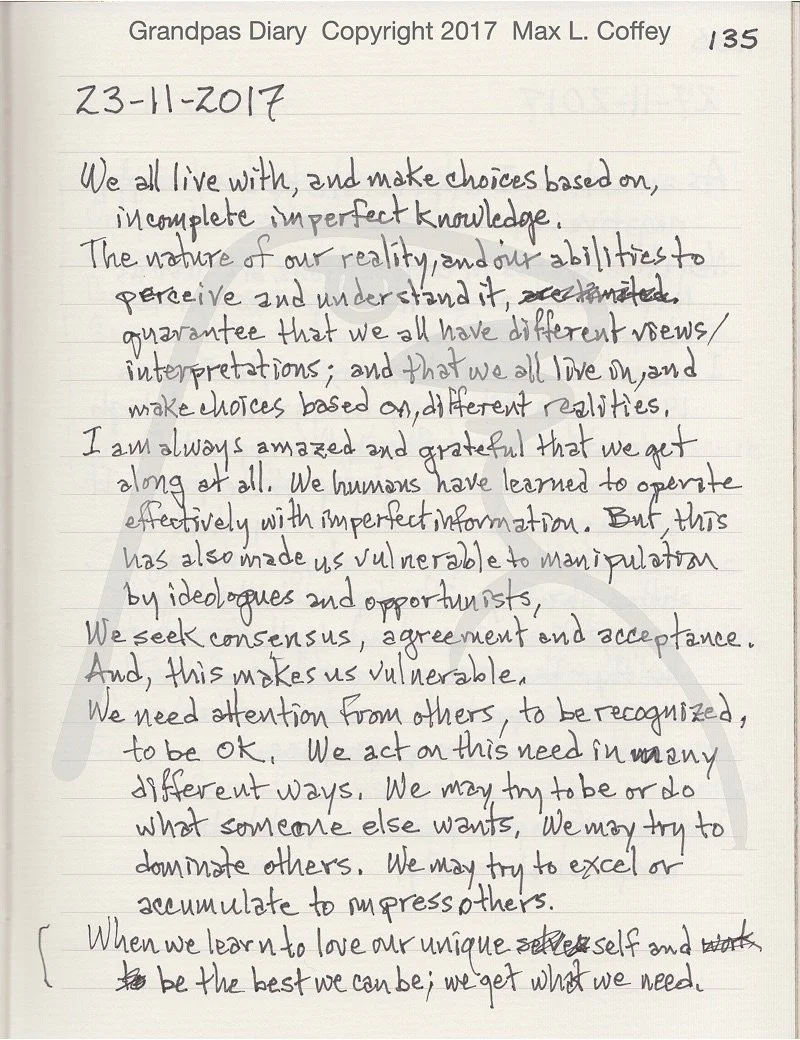 Grandpas Diary Copyright 2017 Max L. Coffey
135
23-11-2017
We all live with, and make choices based on,
incomplete imperfect knowledge.
The nature of our reality, and our abilities to
perceive and understand it, are limited.
guarantee that we all have different views/
interpretations; and that we all live in, and
make choices based on, different realities.
I am always amazed and grateful that we get
along at all. We humans have learned to operate
effectively with imperfect information. But, this
has also made us vulnerable to manipulation
by ideologues and opportunists,
We seek consensus, agreement and acceptance.
And, this makes us vulnerable.
We need attention from others, to be recognized,
to be OK. We act on this need in many
different ways. We may try to be or do
what someone else wants, We may try to
dominate others. We may try to excel or
accumulate to impress others.
When we learn to love our unique self and work
to be the best we can be; we get what we need.